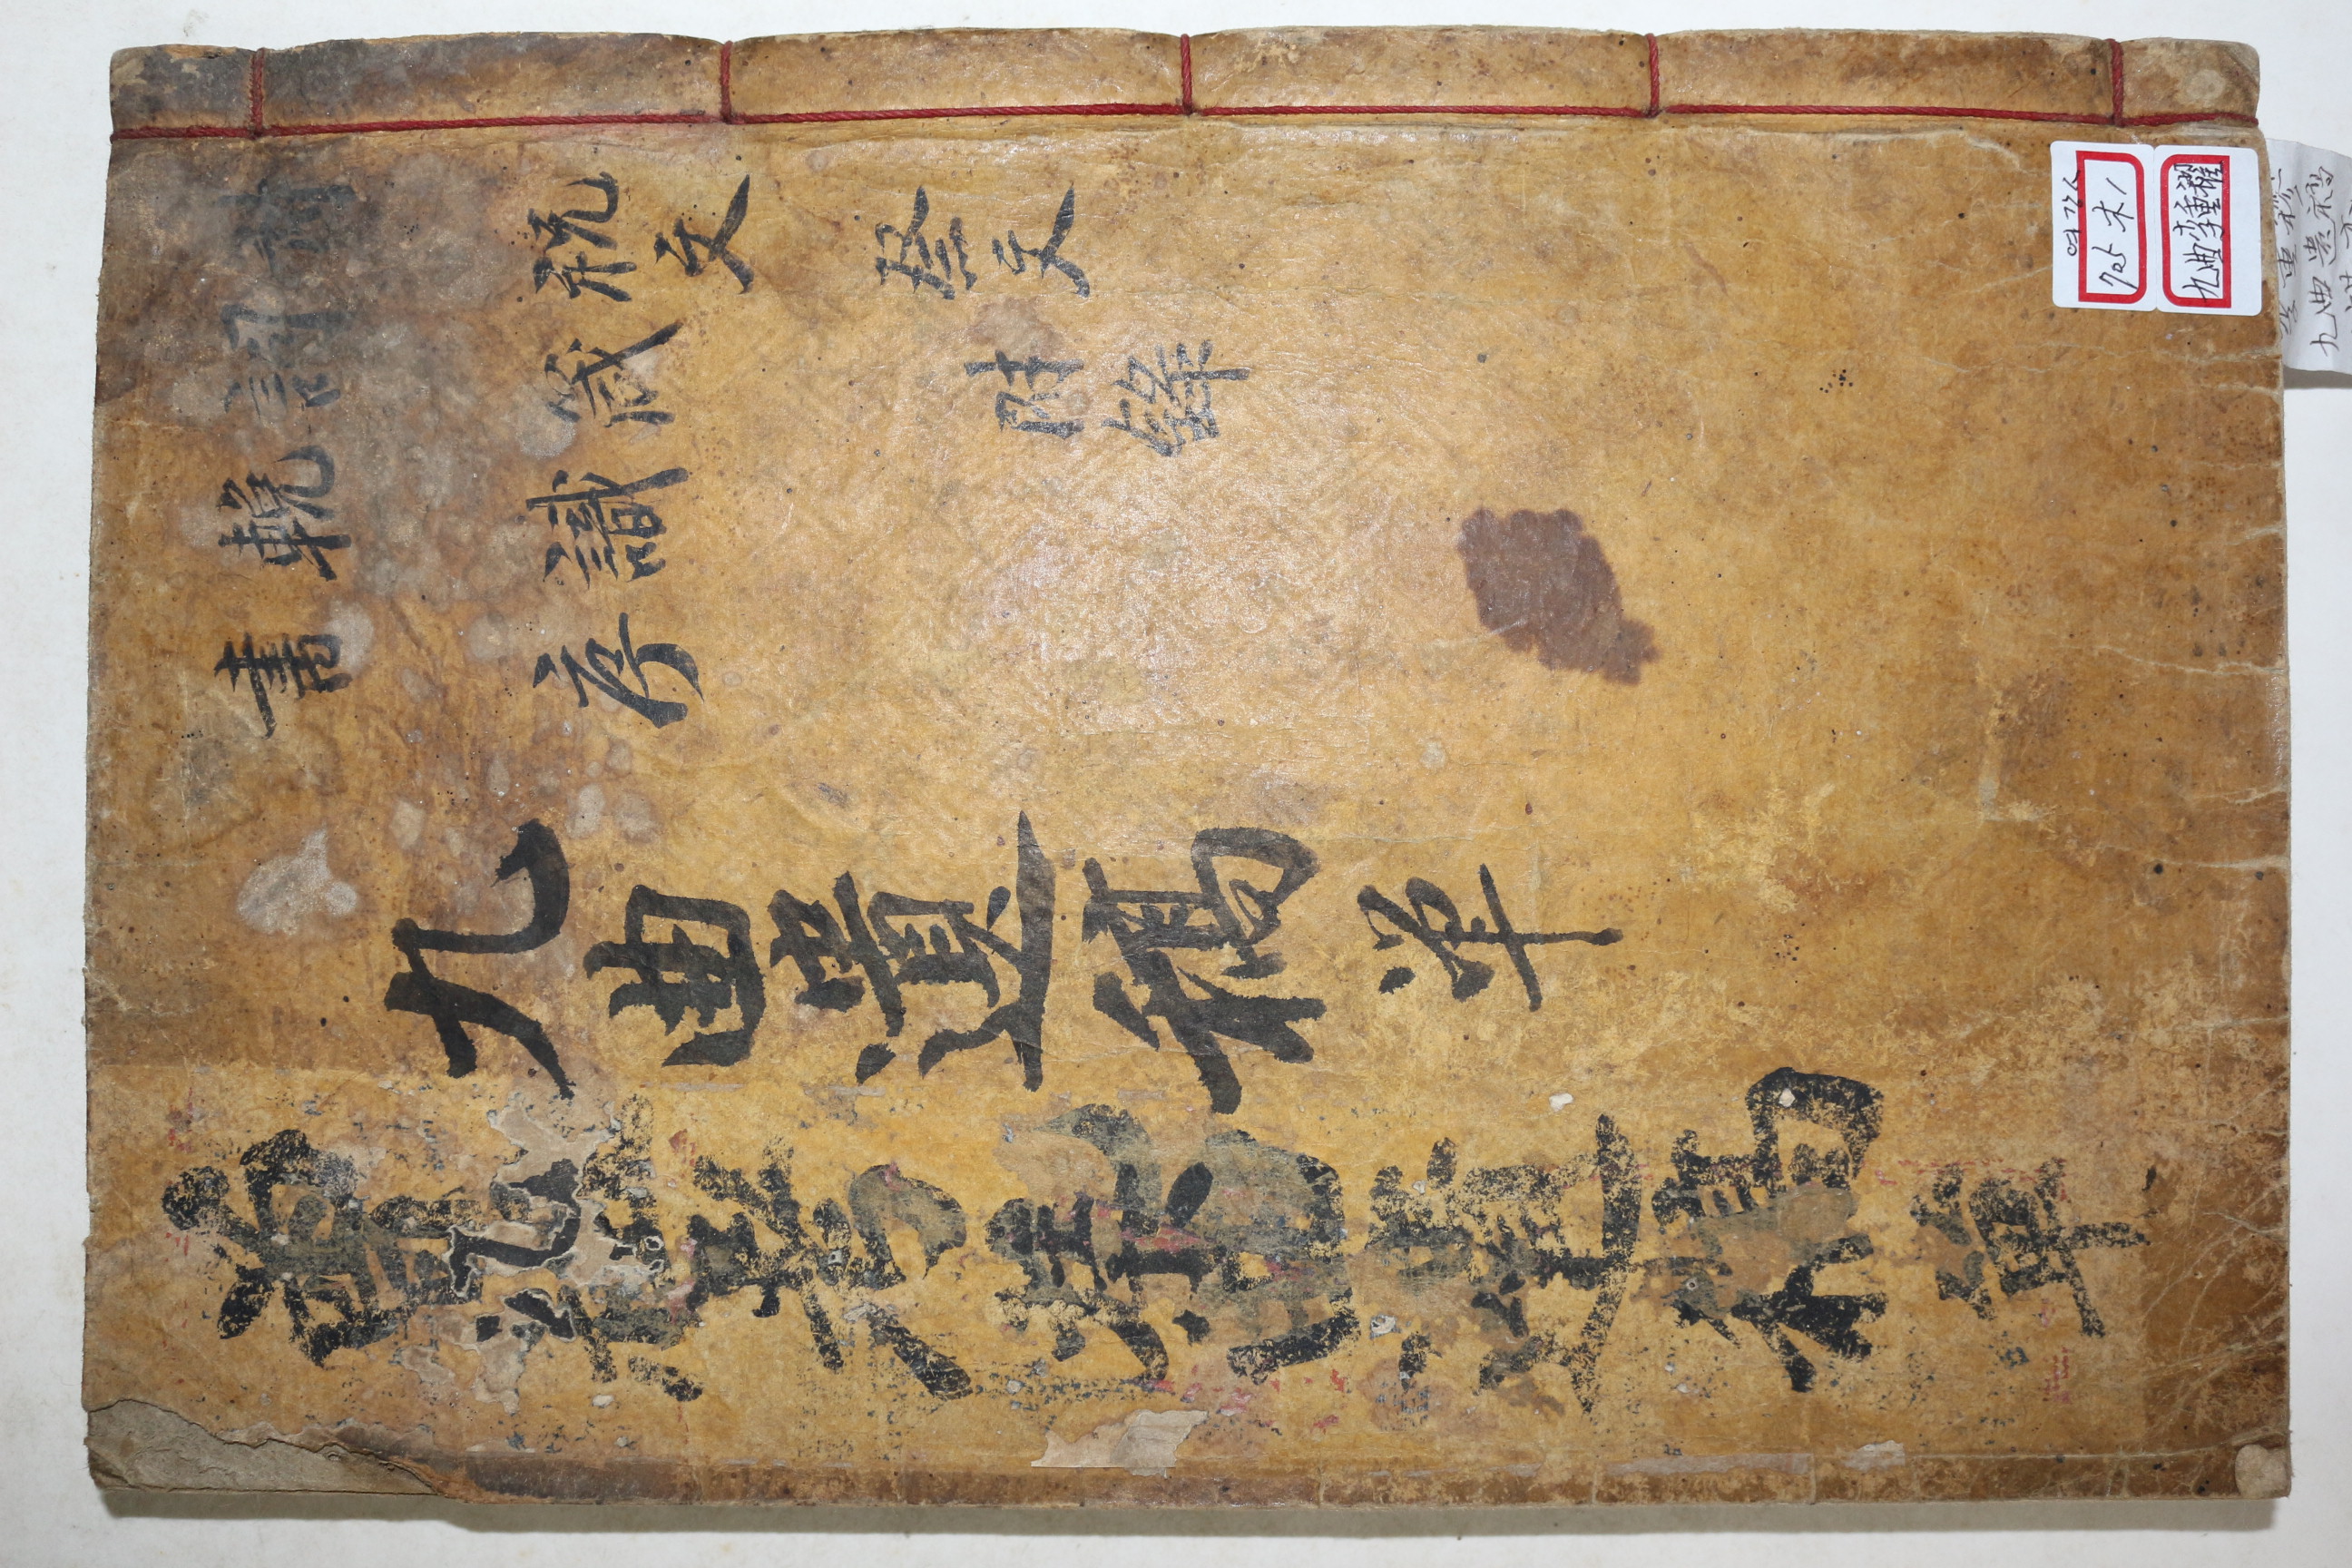 詩 祝文 祭文
詞 箴 附錄
輓 識
書 序
九曲遺稿 單
曾祖考 曲遺稿 單
여강
705 木1
九曲李重
九曲遺稿